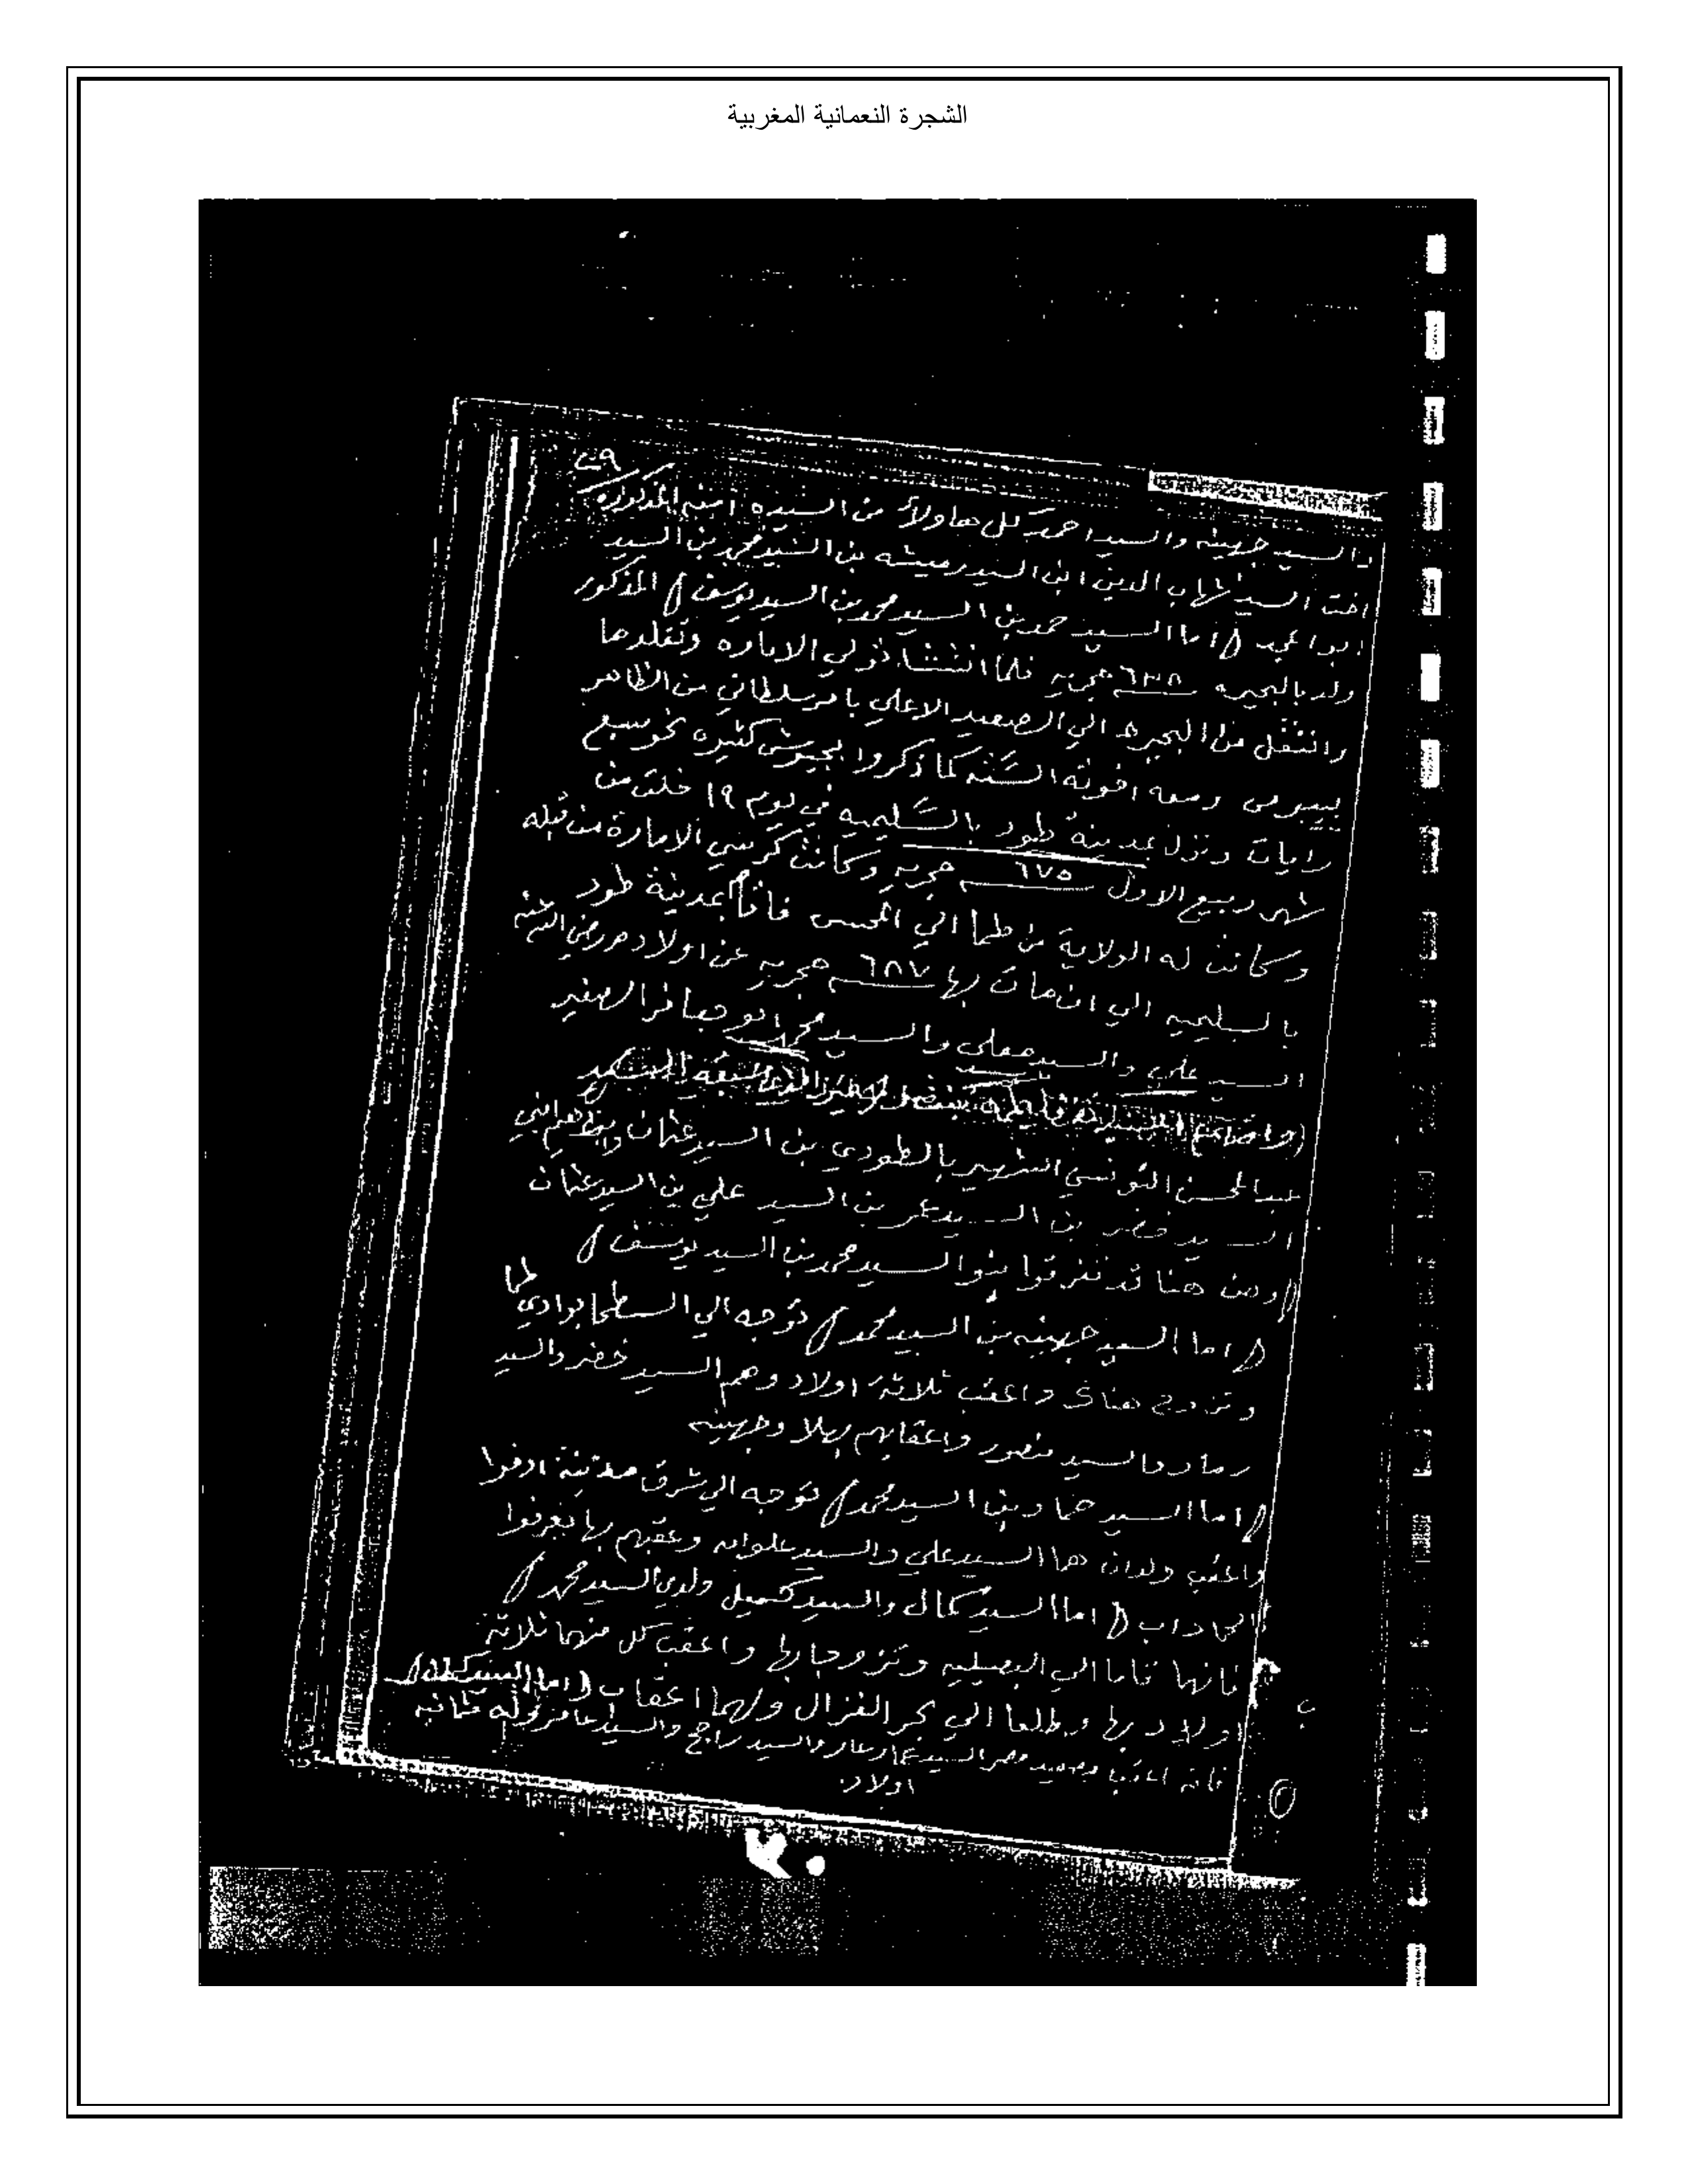 الشجرة النعمانية المغربية
٤٩
والسيد جهينه والسيد احمد كل هاولاء من السيده امنه المذكوره
اخت السيد شهاب الدين ابن السيد رميثه بن السيد محمد بن السيد
اما السيد حمد بن السيد محمد بن السيد يوسف المذكور
ولد بالبحيره ٦٣٥ هجريه فلما انتشا تولي الاماره وتقلدها
وانتقل من البحيره الي الصعيد الاعلي بامر سلطاني من الظاهر
بيبرس ومعه اخوته السته كما ذكروا بجيوش كثيره نحو سبع
رايات ونزل بمدينة طود بالسليميه في يوم ١٩ خلت من
شهر ربيع الاول ٦٧٥ هجريه وكانت كرسي الامارة من قبله
وكانت له الولاية من طما الي فاقام بمدينة طود
بالسليميه الي ان مات بها ٦٨٧ هجريه عن اولاده رضي الله عنه
السيد علي والسيد معلي والسيد محمد ابو جعافر الصغير
عبد المحسن التونسي الشهير بالطودي بن السيد عثمان
السيد خضر بن السيد عمر بن السيد علي بن السيد عثمان
ومن هنا قد تفرقوا بنوا السيد محمد بن السيد يوسف
اما السيد جهينه بن السيد محمد توجه الي السطحا بوادي طما
وتزوج هناك واعقب ثلاثة اولاد وهم السيد خضر والسيد
رماد والسيد منصور واعقابهم بهلا وجهينه
اما السيد حماد بن السيد محمد توجه الي شرق مدينة ادفوا
واعقب ولدان هما السيد علي والسيد علوان وعقبهم بها يعرفوا
اما السيد كمال والسيد كميل ولدي السيد محمد
فانهما قاما الي البصيليه وتزوجا بها واعقب كل منهما ثلاثة
اولاد بها وطلعا الي بحر الغزال ولهما اعقاب اما السيد
فانه اعقب بصعيد مصر السيد عمار والسيد راجح والسيد عامر وله ثمانيه
اولاد